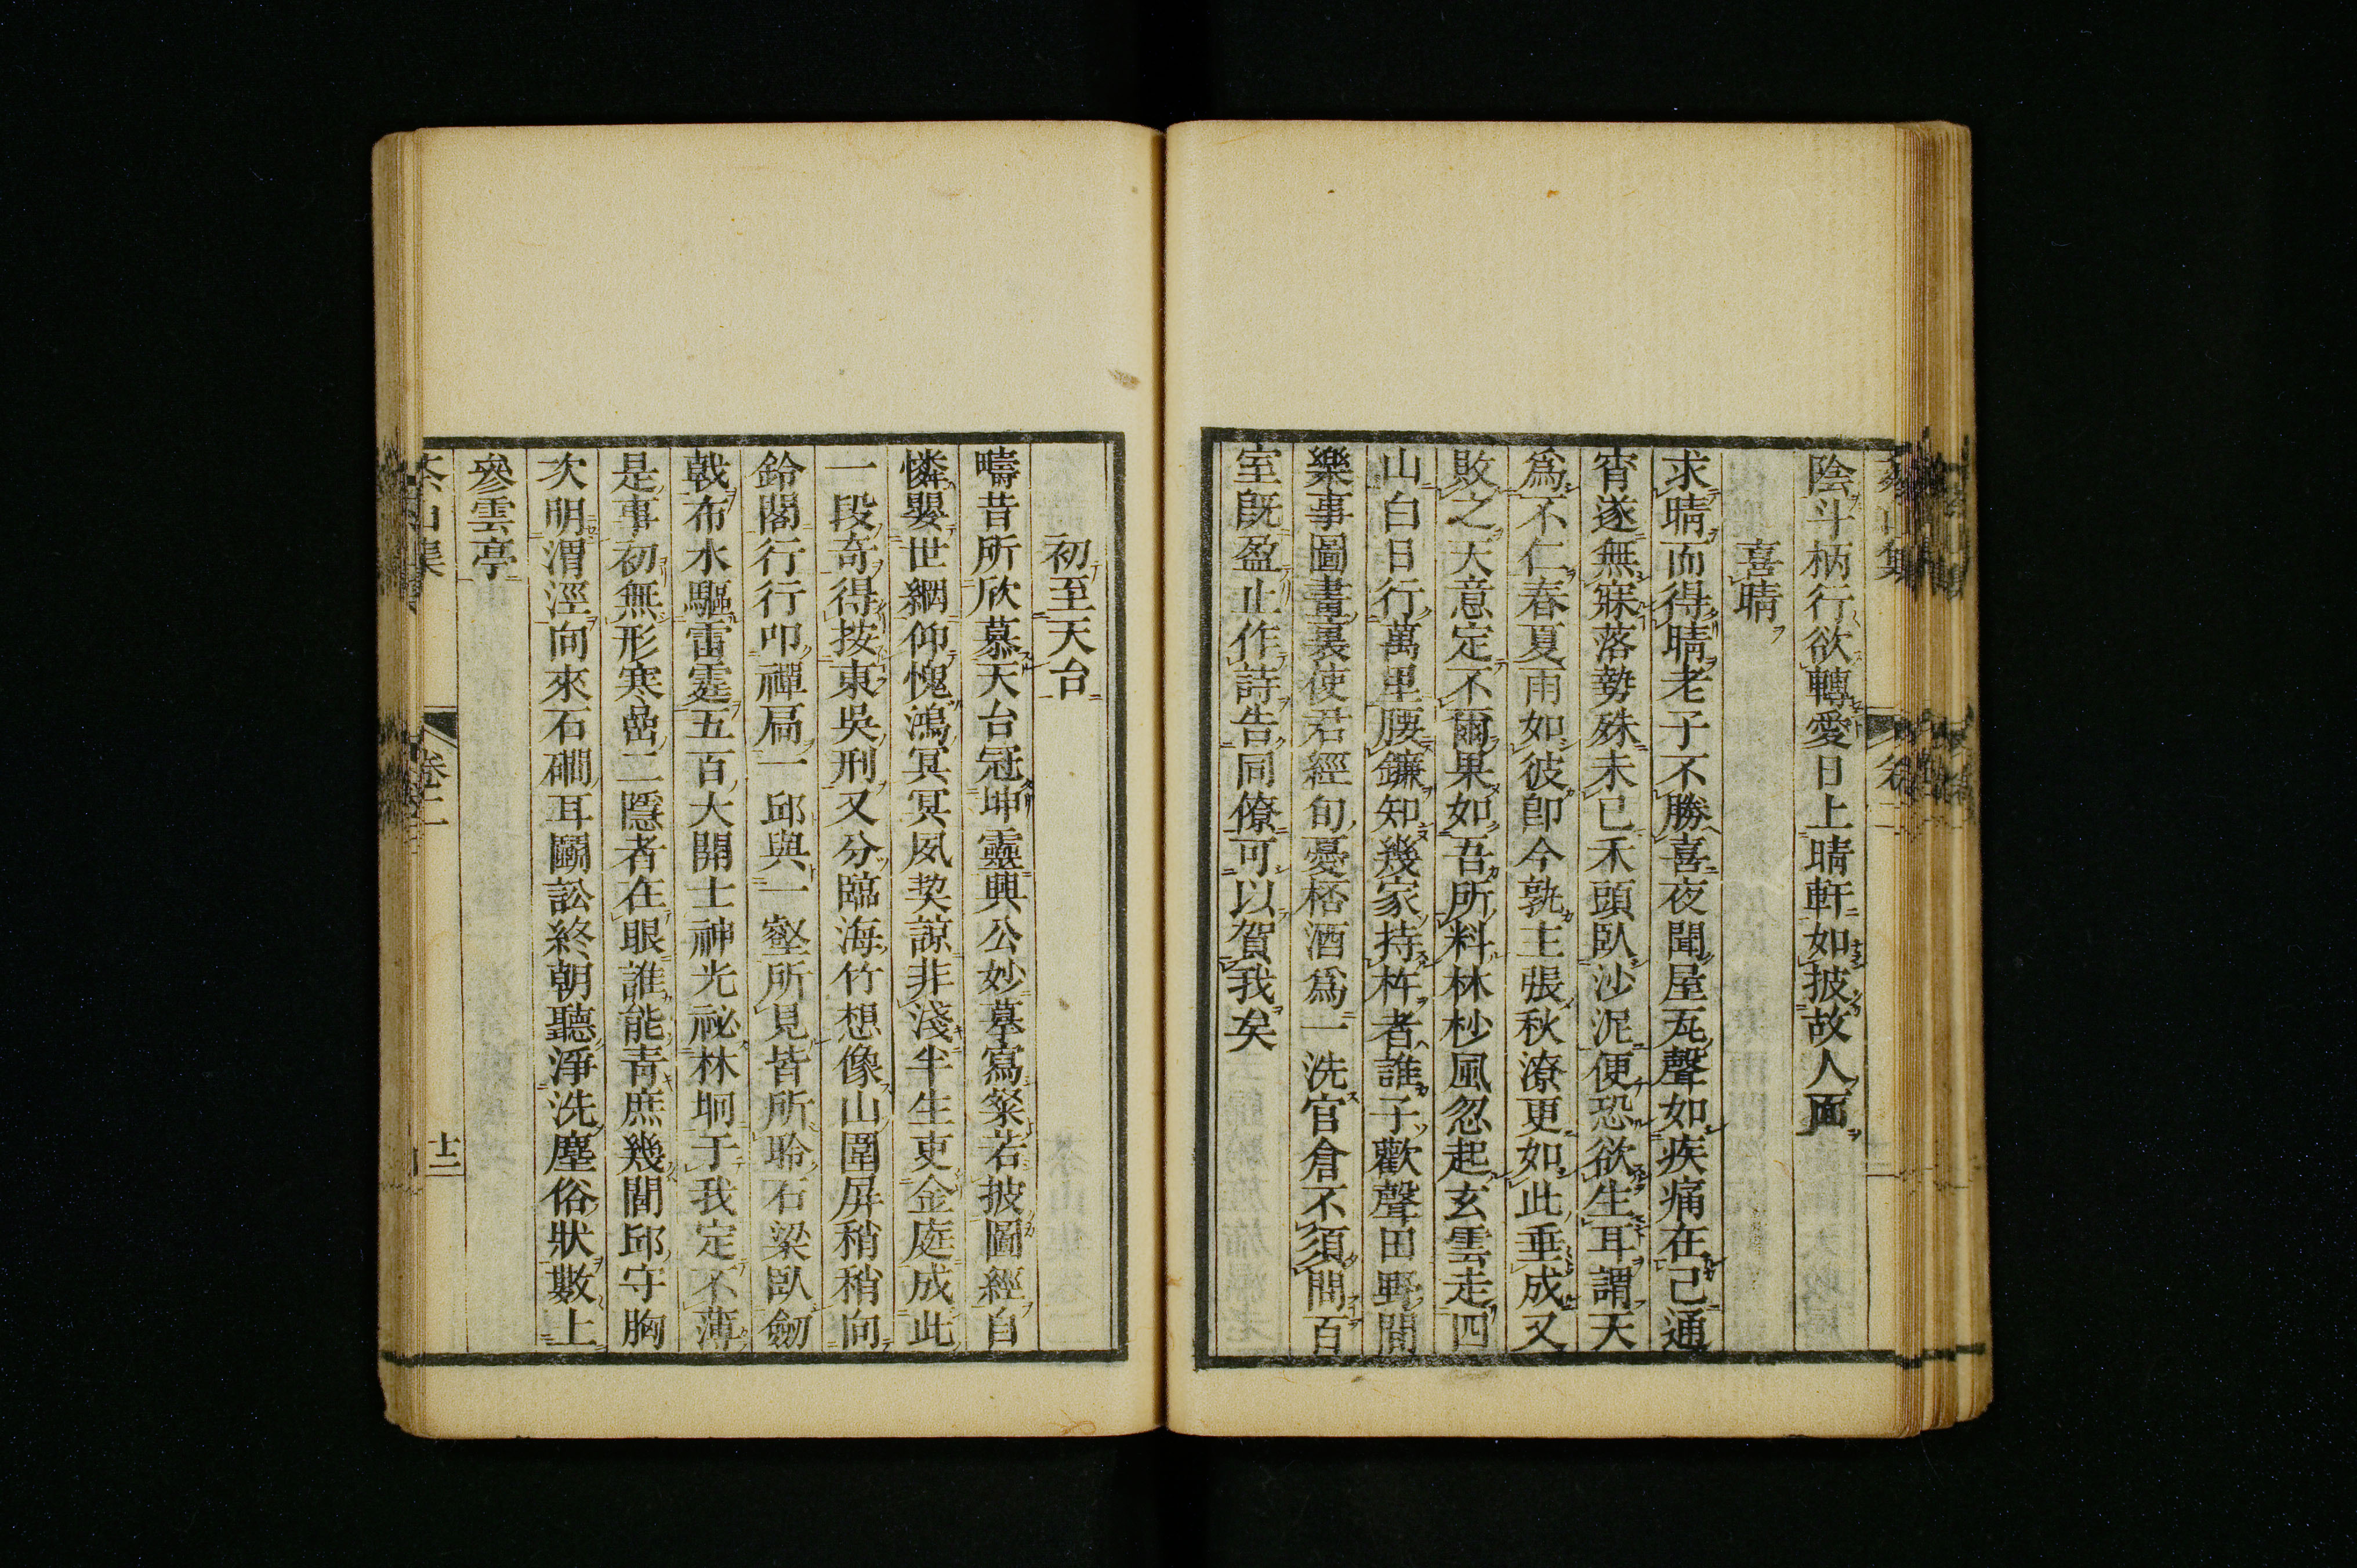 陰斗柄行欲轉愛日上晴軒如披故人面
喜晴
求晴而得晴老子不勝喜夜聞屋瓦聲如疾痛在己通
宵遂無寐落勢殊未已禾頭臥沙泥便恐欲生耳謂天
爲不仁春夏雨如彼卽今孰主張秋潦更如此垂成又
敗之天意定不爾果如吾所料林杪風忽起玄雲走四
山白日行萬里腰鐮知幾家持杵者誰子歡聲田野間
樂事圖畫裏使君經旬憂桮酒爲一洗官倉不須問百
室旣盈止作詩告同僚可以賀我矣
初至天台
疇昔所欣慕天台冠坤靈興公妙摹寫粲若披圖經自
憐嬰世網仰愧鴻冥冥夙契諒非淺半生吏金庭成此
一段奇得按東吳刑又分臨海竹想像山圍屏稍稍向
鈴閣行行叩禪扃一邱與一壑所見皆所聆石梁臥劒
戟布水驅雷霆五百大開士神光祕林坰于我定不薄
是事初無形寒嵒二隱者在眼誰能靑庶幾閭邱守胸
次明渭涇向來石磵耳鬭訟終朝聽淨洗塵俗狀數上
參雲亭
茶山集
卷二
十二